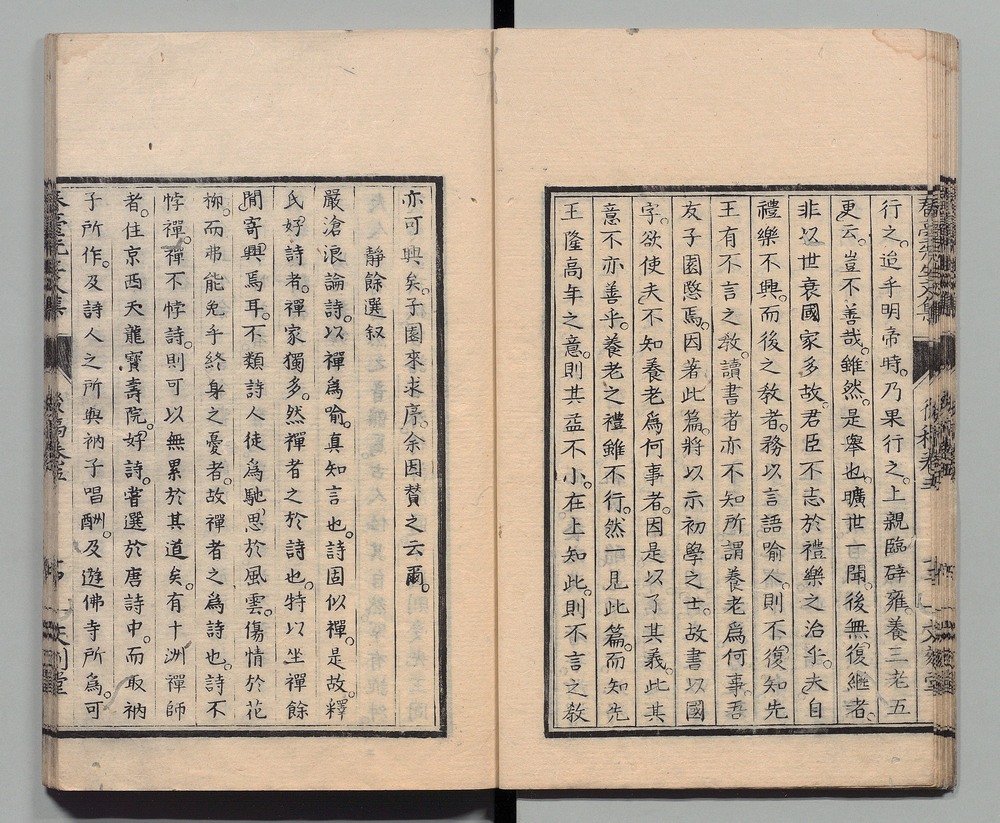 行之。迨乎明帝時。乃果行之。上親臨辟雍。養三老五
更云。豈不善哉。雖然。是擧也。曠世有聞。後無復繼者。
非以世衰國家多故。君臣不志於禮樂之治乎。夫自
禮樂不興。而後之教者。務以言語喻人。則不復知先
王有不言之教。讀書者亦不知所謂養老爲何事。吾
友子園愍焉。因著此篇。將以示初學之士。故書以國
字。欲使夫不知養老爲何事者。因是以了其義。此其
意不亦善乎。養老之禮雖不行。然一見此篇。而知先
王隆高年之意。則其益不小。在上知此。則不言之教
亦可興矣。子園來求序。余因贊之云爾。
靜餘選叙
嚴滄浪論詩。以禪爲喻。眞知言也。詩固似禪。是故釋
氏好詩者。禪家獨多。然禪者之於詩也。特以坐禪餘
閒寄興焉耳。不類詩人徒爲馳思於風雲。傷情於花
柳。而弗能免乎終身之憂者。故禪者之爲詩也。詩不
悖禪。禪不悖詩。則可以無累於其道矣。有十洲禪師
者。住京西天龍寶壽院。好詩。嘗選於唐詩中。而取衲
子所作。及詩人之所與衲子唱酬。及遊佛寺所爲。可
春臺先生文集